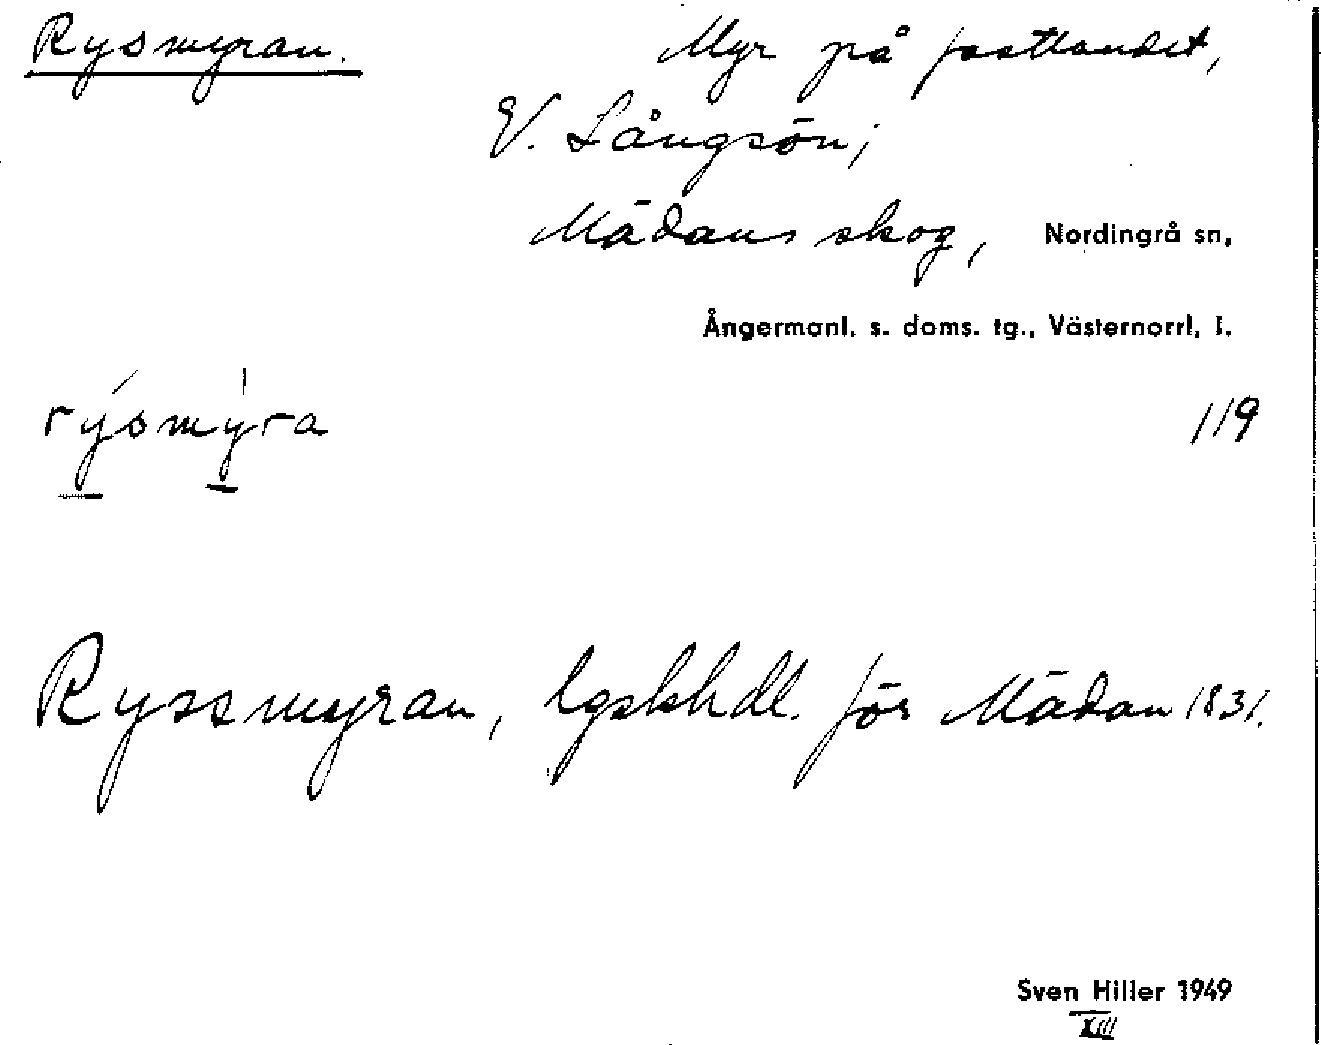 Rysmyran. Myr på fastlandet,
V. Långsön;
Mädans skog, Nordingrå sn,
Ångermanl. s. doms. tg., Västernorrl. l.
rysmyra 119
Ryssmyran, lgskhdl. för Mädan 1831.
Sven Hiller 1949
XIII